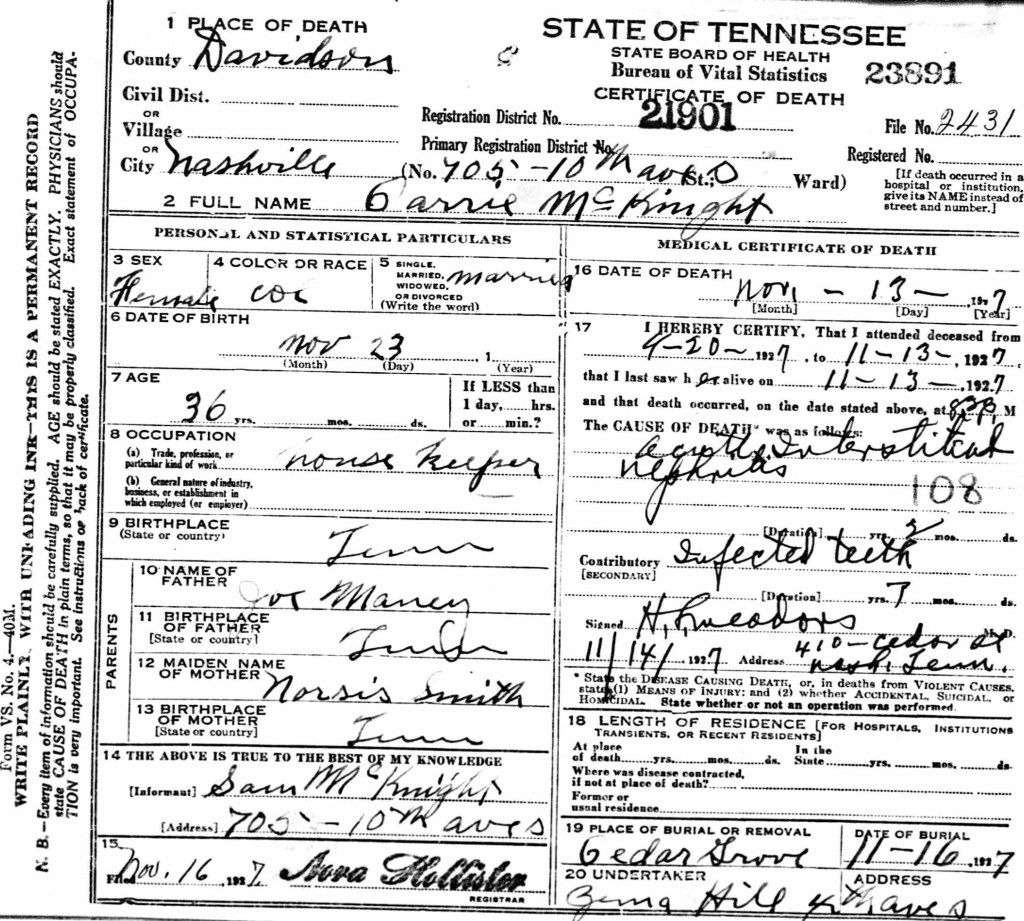 Form VS. No. 4.—40M.
WRITE PLAINLY, WITH UNFADING INK—THIS IS A PERMANENT RECORD
N. B.—Every item of information should be carefully supplied. AGE should be stated EXACTLY. PHYSICIANS should
state CAUSE OF DEATH in plain terms, so that it may be properly classified. Exact statement of OCCUPA-
TION is very important. See instructions on back of certificate.
1 PLACE OF DEATH
County Davidson
Civil Dist.
OR
Village
OR
City Nashville (No. 705-10th ave S St.; Ward)
2 FULL NAME Carrie McKnight
STATE OF TENNESSEE
STATE BOARD OF HEALTH
Bureau of Vital Statistics
CERTIFICATE OF DEATH
23891
Registration District No. 21901
File No. 2431
Primary Registration District No.
Registered No.
[If death occurred in a
hospital or institution,
give its NAME instead of
street and number.]
PERSONAL AND STATISTICAL PARTICULARS
3 SEX
Female
4 COLOR OR RACE
Col
5 SINGLE,
MARRIED,
WIDOWED,
OR DIVORCED
(Write the word)
married
6 DATE OF BIRTH
Nov 23, 1
(Month) (Day) (Year)
7 AGE
36 yrs. mos. ds.
If LESS than
1 day, hrs.
or min.?
8 OCCUPATION
(a) Trade, profession, or
particular kind of work House Keeper
(b) General nature of industry,
business, or establishment in
which employed (or employer)
9 BIRTHPLACE
(State or country) Tenn
PARENTS
10 NAME OF
FATHER Joe Maney
11 BIRTHPLACE
OF FATHER
[State or country] Tenn
12 MAIDEN NAME
OF MOTHER Smith
13 BIRTHPLACE
OF MOTHER
[State or country] Tenn
14 THE ABOVE IS TRUE TO THE BEST OF MY KNOWLEDGE
[Informant] Sam McKnight
[Address] 705-10th ave S
15
Filed Nov. 16, 1927. Nova Hollister
REGISTRAR
MEDICAL CERTIFICATE OF DEATH
16 DATE OF DEATH
Nov. - 13 -, 1927
[Month] [Day] [Year]
17 I HEREBY CERTIFY, That I attended deceased from
9-20-, 1927, to 11-13-, 1927,
that I last saw h er alive on 11-13-, 1927
and that death occurred, on the date stated above, at M
The CAUSE OF DEATH* was as follows:
Interstitial
nephritis
108
[Duration] yrs. 2 mos. ds.
Contributory Infected teeth
[SECONDARY]
[Duration] yrs. 7 mos. ds.
Signed M. D.
11/14/, 1927 Address 410-cedar st
Nash. Tenn.
* State the DISEASE CAUSING DEATH, or, in deaths from VIOLENT CAUSES,
state (1) MEANS OF INJURY; and (2) whether ACCIDENTAL, SUICIDAL, or
HOMICIDAL. State whether or not an operation was performed.
18 LENGTH OF RESIDENCE [FOR HOSPITALS, INSTITUTIONS
TRANSIENTS, OR RECENT RESIDENTS]
At place
of death yrs. mos. ds.
In the
State yrs. mos. ds.
Where was disease contracted,
if not at place of death?
Former or
usual residence
19 PLACE OF BURIAL OR REMOVAL
Cedar Grove
DATE OF BURIAL
11-16, 1927
20 UNDERTAKER
Zema Hill
ADDRESS
4th ave S